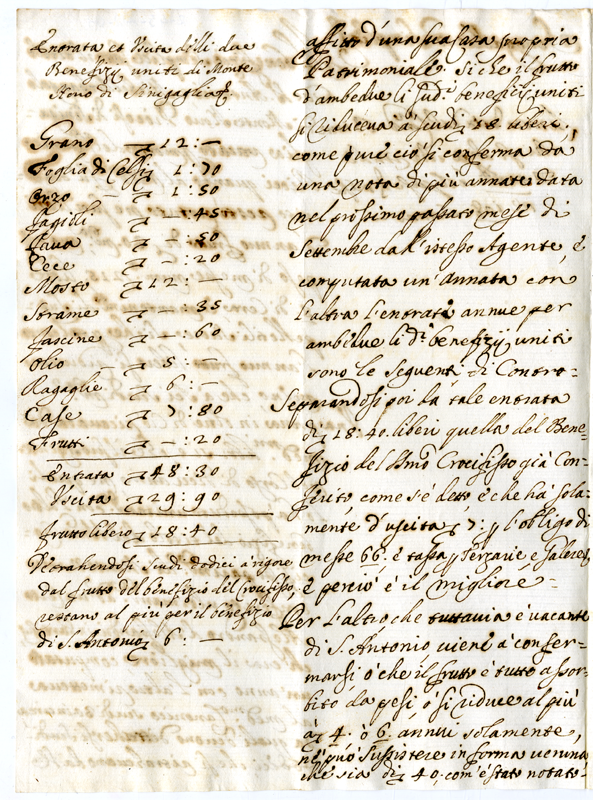 Entrata et Uscita delli due
Benefizij uniti di Monte
di Sinigaglia
Grano — 12 : —
Foglia di Celsi 1 : 70
Orzo — 1 : 50
Fagioli — : 45
Fava — : 50
Cece — : 20
Mosto 12 : —
Strame — : 35
Fascine — : 60
Olio — 5 : —
Regaglie — 6 : —
Case 7 : 80
Frutti — : 20
Entrata 48 : 30
Uscita 29 : 90
frutto libero 18 : 40
Detrahendosi scudi dodici à rigore
dal frutto del benefizio del Crocifisso
restano al più per il benefizio
di S. Antonio 6 : —
affitto d'una sua Casa propria
Patrimoniale. Si che il frutto
d'ambedue li sud.i beneficij uniti
si riduceva à scudi 18 liberi,
come pure ciò si conferma da
una nota di più annate data
nel prossimo passato mese di
Settembre dall'istesso Agente, è
computata un'annata con
l'altra l'entrate annue per
ambedue li d.i benefizij uniti
sono le seguenti, di Contro-
Separandosi poi la tale entrata
di 18:40. liberi quella del Bene=
fizio del SSmo Crocifisso già Con=
ferito, come s'è detto, è che hà sola=
mente d'uscita 7: l'obligo di
messe 66. è tassa Terzarie e
è perciò è il migliore -
Per l'altro, che tuttavia è vacante
di S. Antonio viene à confer=
marsi ò che il frutto è tutto assor=
bito da pesi, ò si riduce al più
à 4. ò 6. annui solamente,
nè può sussistere in forma veruna
che sia di 40, com'è stato notato-